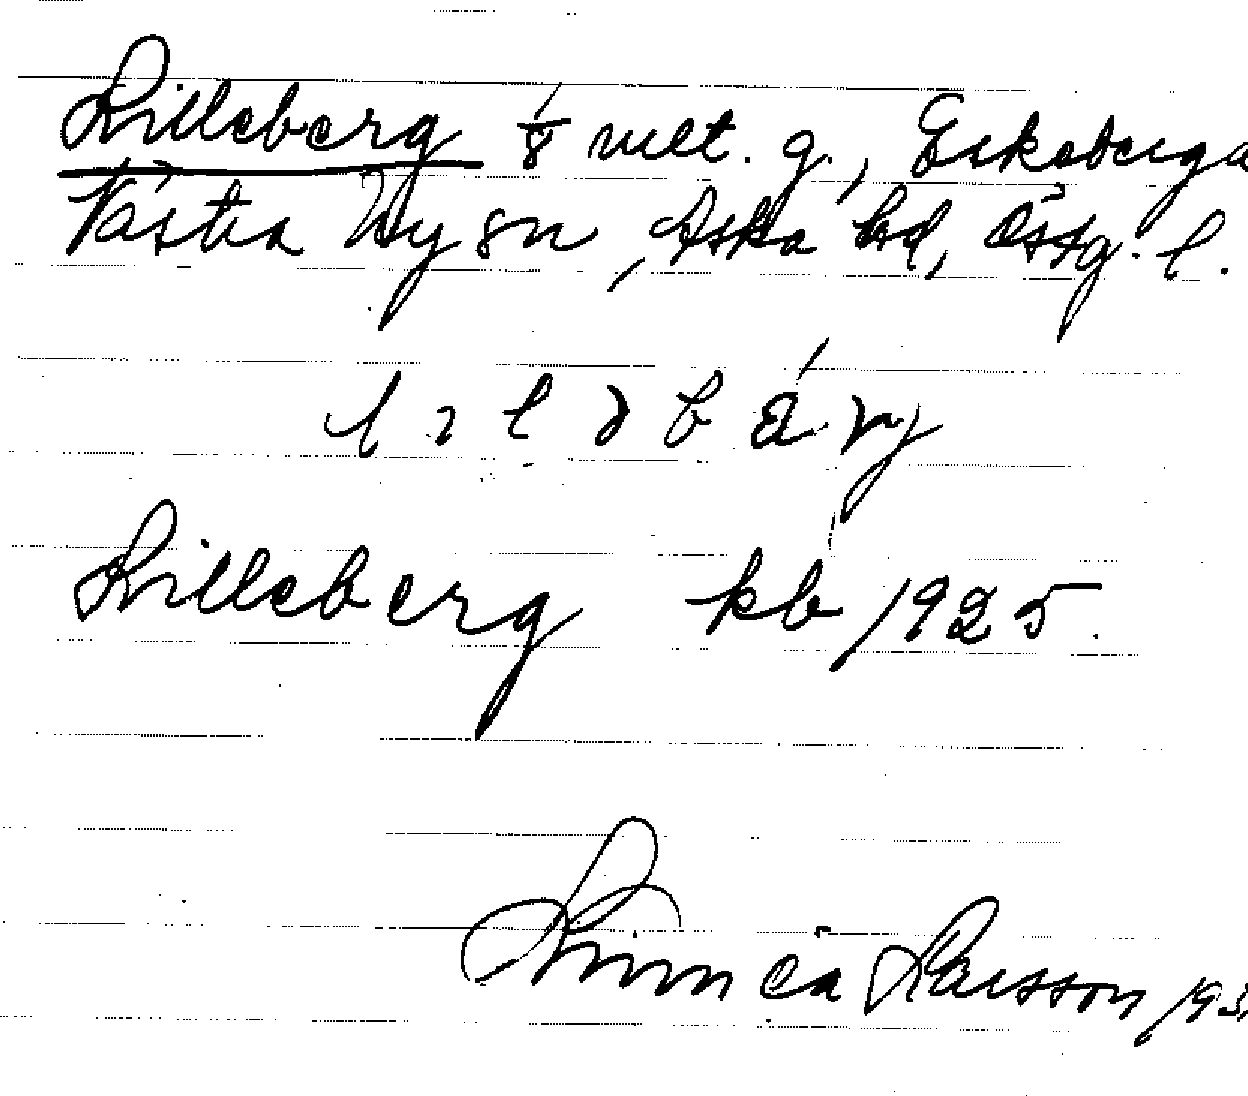 Lilleberg 1/8 mlt. g., Erkeberga
Västra Ny sn, Aska hd, Östg. l.
Lilleberg kb 1925.
Linnéa Larsson 193